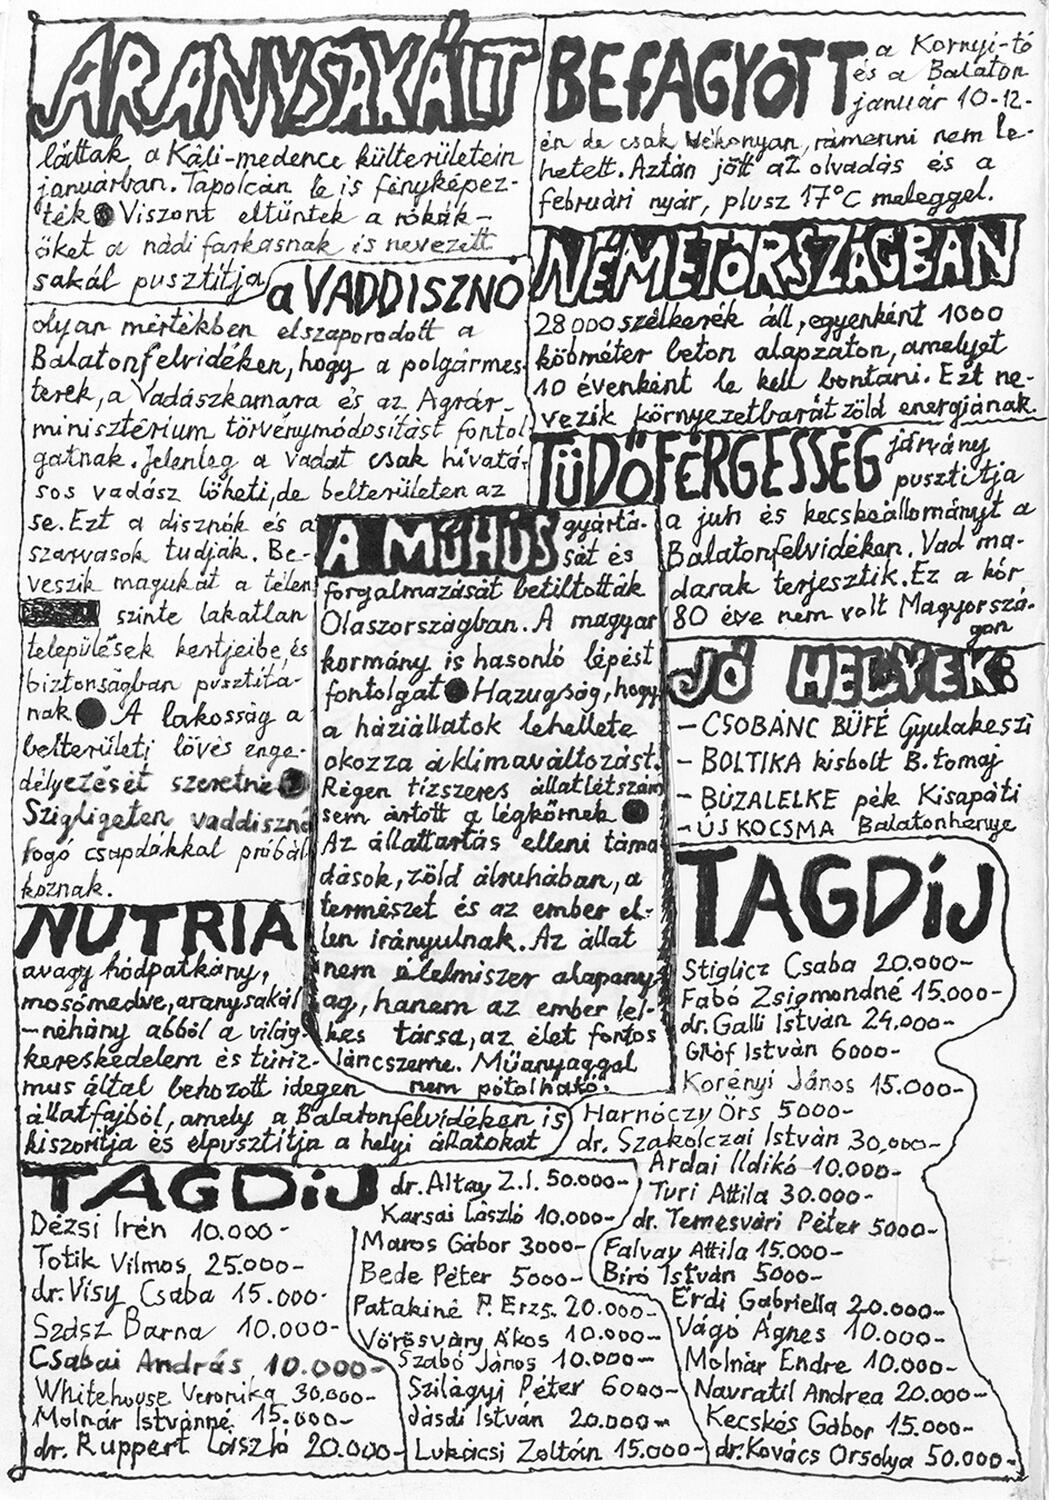 ARANYSAKÁLT
láttak a Káli-medence külterületein
januárban. Tapolcán le is fényképez-
ték ● Viszont eltűntek a rókák-
őket a nádi farkasnak is nevezett
sakál pusztítja
a VADDISZNÓ
olyan mértékben elszaporodott a
Balatonfelvidéken, hogy a polgármes-
terek, a Vadászkamara és az Agrár-
minisztérium törvénymódosítást fontol
gatnak. Jelenleg a vadat csak hivatá-
sos vadász lőheti, de belterületen az
se. Ezt a disznók és a
szarvasok tudják. Be-
veszik magukat a télen
szinte lakatlan
települések kertjeibe, és
biztonságban pusztíta-
nak ● A lakosság a
belterületi lövés enge-
délyezését szeretné ●
Szigligeten vaddisznó
fogó csapdákkal próbál
koznak.
NUTRIA
avagy hódpatkány,
mosómedve, aranysakál
-néhány abból a világ-
kereskedelem és turiz-
mus által behozott idegen
állatfajból, amely a Balatonfelvidéken is
kiszorítja és elpusztítja a helyi állatokat
A MŰHÚS gyártá-
sát és
forgalmazását betiltották
Olaszországban. A magyar
kormány is hasonló lépést
fontolgat ● Hazugság, hogy
a háziállatok lehellete
okozza a klímaváltozást.
Régen tízszeres állatlétszám
sem ártott a légkörnek ●
Az állattartás elleni táma
dások, zöld álruhában, a
természet és az ember el-
len irányulnak. Az állat
nem élelmiszer alapany-
ag, hanem az ember lel-
kes társa, az élet fontos
láncszeme. Műanyaggal
nem pótolható.
BEFAGYOTT a Kornyi-tó
és a Balaton
január 10-12-
én de csak vékonyan, rámenni nem le-
hetett. Aztán jött az olvadás és a
februári nyár, plusz 17°C meleggel.
NÉMETORSZÁGBAN
28000 szélkerék áll, egyenként 1000
köbméter beton alapzaton, amelyet
10 évenként le kell bontani. Ezt ne-
vezik környezetbarát zöld energiának.
TÜDŐFÉRGESSÉG járvány
pusztítja
a juh és kecskeállományt a
Balatonfelvidéken. Vad ma-
darak terjesztik. Ez a kór
80 éve nem volt Magyorszá-
gon
JÓ HELYEK:
- CSOBÁNC BÜFÉ Gyulakeszi
- BOLTIKA kisbolt B.tomaj
- BÚZALELKE pék Kisapáti
- ÚJ KOCSMA Balatonhenye
TAGDíJ
Stiglicz Csaba 20.000-
Fabó Zsigmondné 15.000-
dr. Galli István 24.000-
Gróf István 6000-
Korényi János 15.000-
Harnóczy Örs 5000-
dr. Szakolczai István 30,000-
Ardai Ildikó 10.000-
Turi Attila 30.000-
dr. Temesvári Péter 5000-
Falvay Attila 15.000-
Bíró István 5000-
Érdi Gabriella 20.000-
Vágó Ágnes 10.000-
Molnár Endre 10.000-
Navratil Andrea 20.000-
Kecskés Gábor 15.000-
dr. Kovács Orsolya 50.000-
TAGDíJ
Dézsi Irén 10.000-
Totik Vilmos 25.000-
dr. Visy Csaba 15.000-
Szász Barna 10.000-
Csabai András 10.000-
Whitehouse Veronika 30,000-
Molnár Istvánné 15.000-
dr. Ruppert László 20.000-
dr. Altay Z.I. 50.000-
Karsai László 10.000-
Maros Gábor 3000-
Bede Péter 5000-
Patakiné P. Erzs. 20.000-
Vörösváry Ákos 10.000-
Szabó János 10.000-
Szilágyi Péter 6000-
Jásdi István 20.000-
Lukácsi Zoltán 15.000-